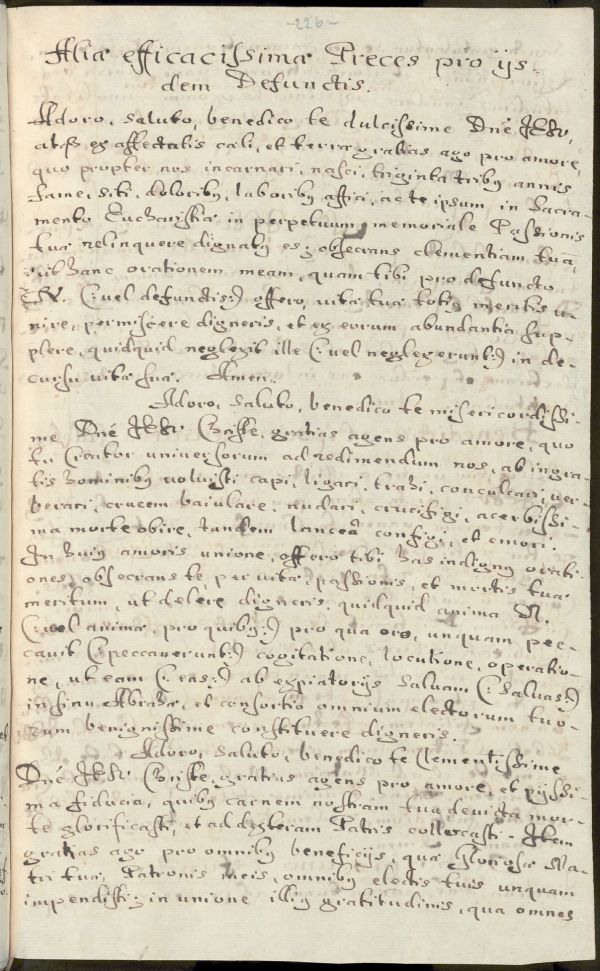 -226-
Aliæ efficacissimæ Preces pro ijs-
dem Defunctis.
Adoro, saluto, benedico te dulcissime Dñe JESV,
atq3 ex affectatis cæli, et terræ gratias ago pro amore,
quo propter nos incarnari, nasci, triginta tribq annis
fame, siti, doloribq, laboribq affici, ac te ipsum in Sacra-
mento Eucharistiæ in perpetuum memoriale Passionis
tuæ relinquere dignatq es; obsecrans clementiam tuā,
ut hanc orationem meam, quam tibi pro defuncto
N. (: vel defunctis:) offero, vitæ tuæ totiq meritis u-
nire, permiscere digneris, et ex eorum abundantia sup-
plere, quidquid neglexit ille (: vel neglexerunt:) in de-
cursu vitæ suæ. Amen.
Adoro, saluto, benedico te misericordissi-
me Dñe JESV Christe, gratias agens pro amore, quo
tu Creator universorum ad redimendum nos, ab ingra-
tis hominibq voluisti capi, ligari, trahi, conculcari, ver-
berari, crucem baiulare, nudari, crucifigi, acerbissi-
ma morte obire, tandem lanceâ configi, et emori.
In huiq amoris unione, offero tibi has indignas orati-
ones, obsecrans te, per vitæ, passionis, et mortis tuæ
meritum, ut delere digneris, quidquid anima N.
(: vel animæ, pro quibq:) pro qua oro, unquam pec-
cavit (: peccaverunt:) cogitatione, locutione, operatio-
ne, ut eam (: eas:) ab expiatorijs salvam (: salvas:)
in sinu Abrahæ, et consortio omnium electorum tuo-
rum benignissime constituere digneris.
Adoro, saluto, benedico te Clementissime
Dñe JESV Christe, gratias agens pro amore, et pijssi-
ma fiducia, quibq carnem nostram tua devicta mor-
te glorificasti, et ad dexteram Patris collocasti. Item
gratias ago pro omnibq beneficijs, quæ Gloriosæ Ma-
tri tuæ, Patronis meis, omnibq electis tuis unquam
impendisti; in unione illiq gratitudinis, qua omnes